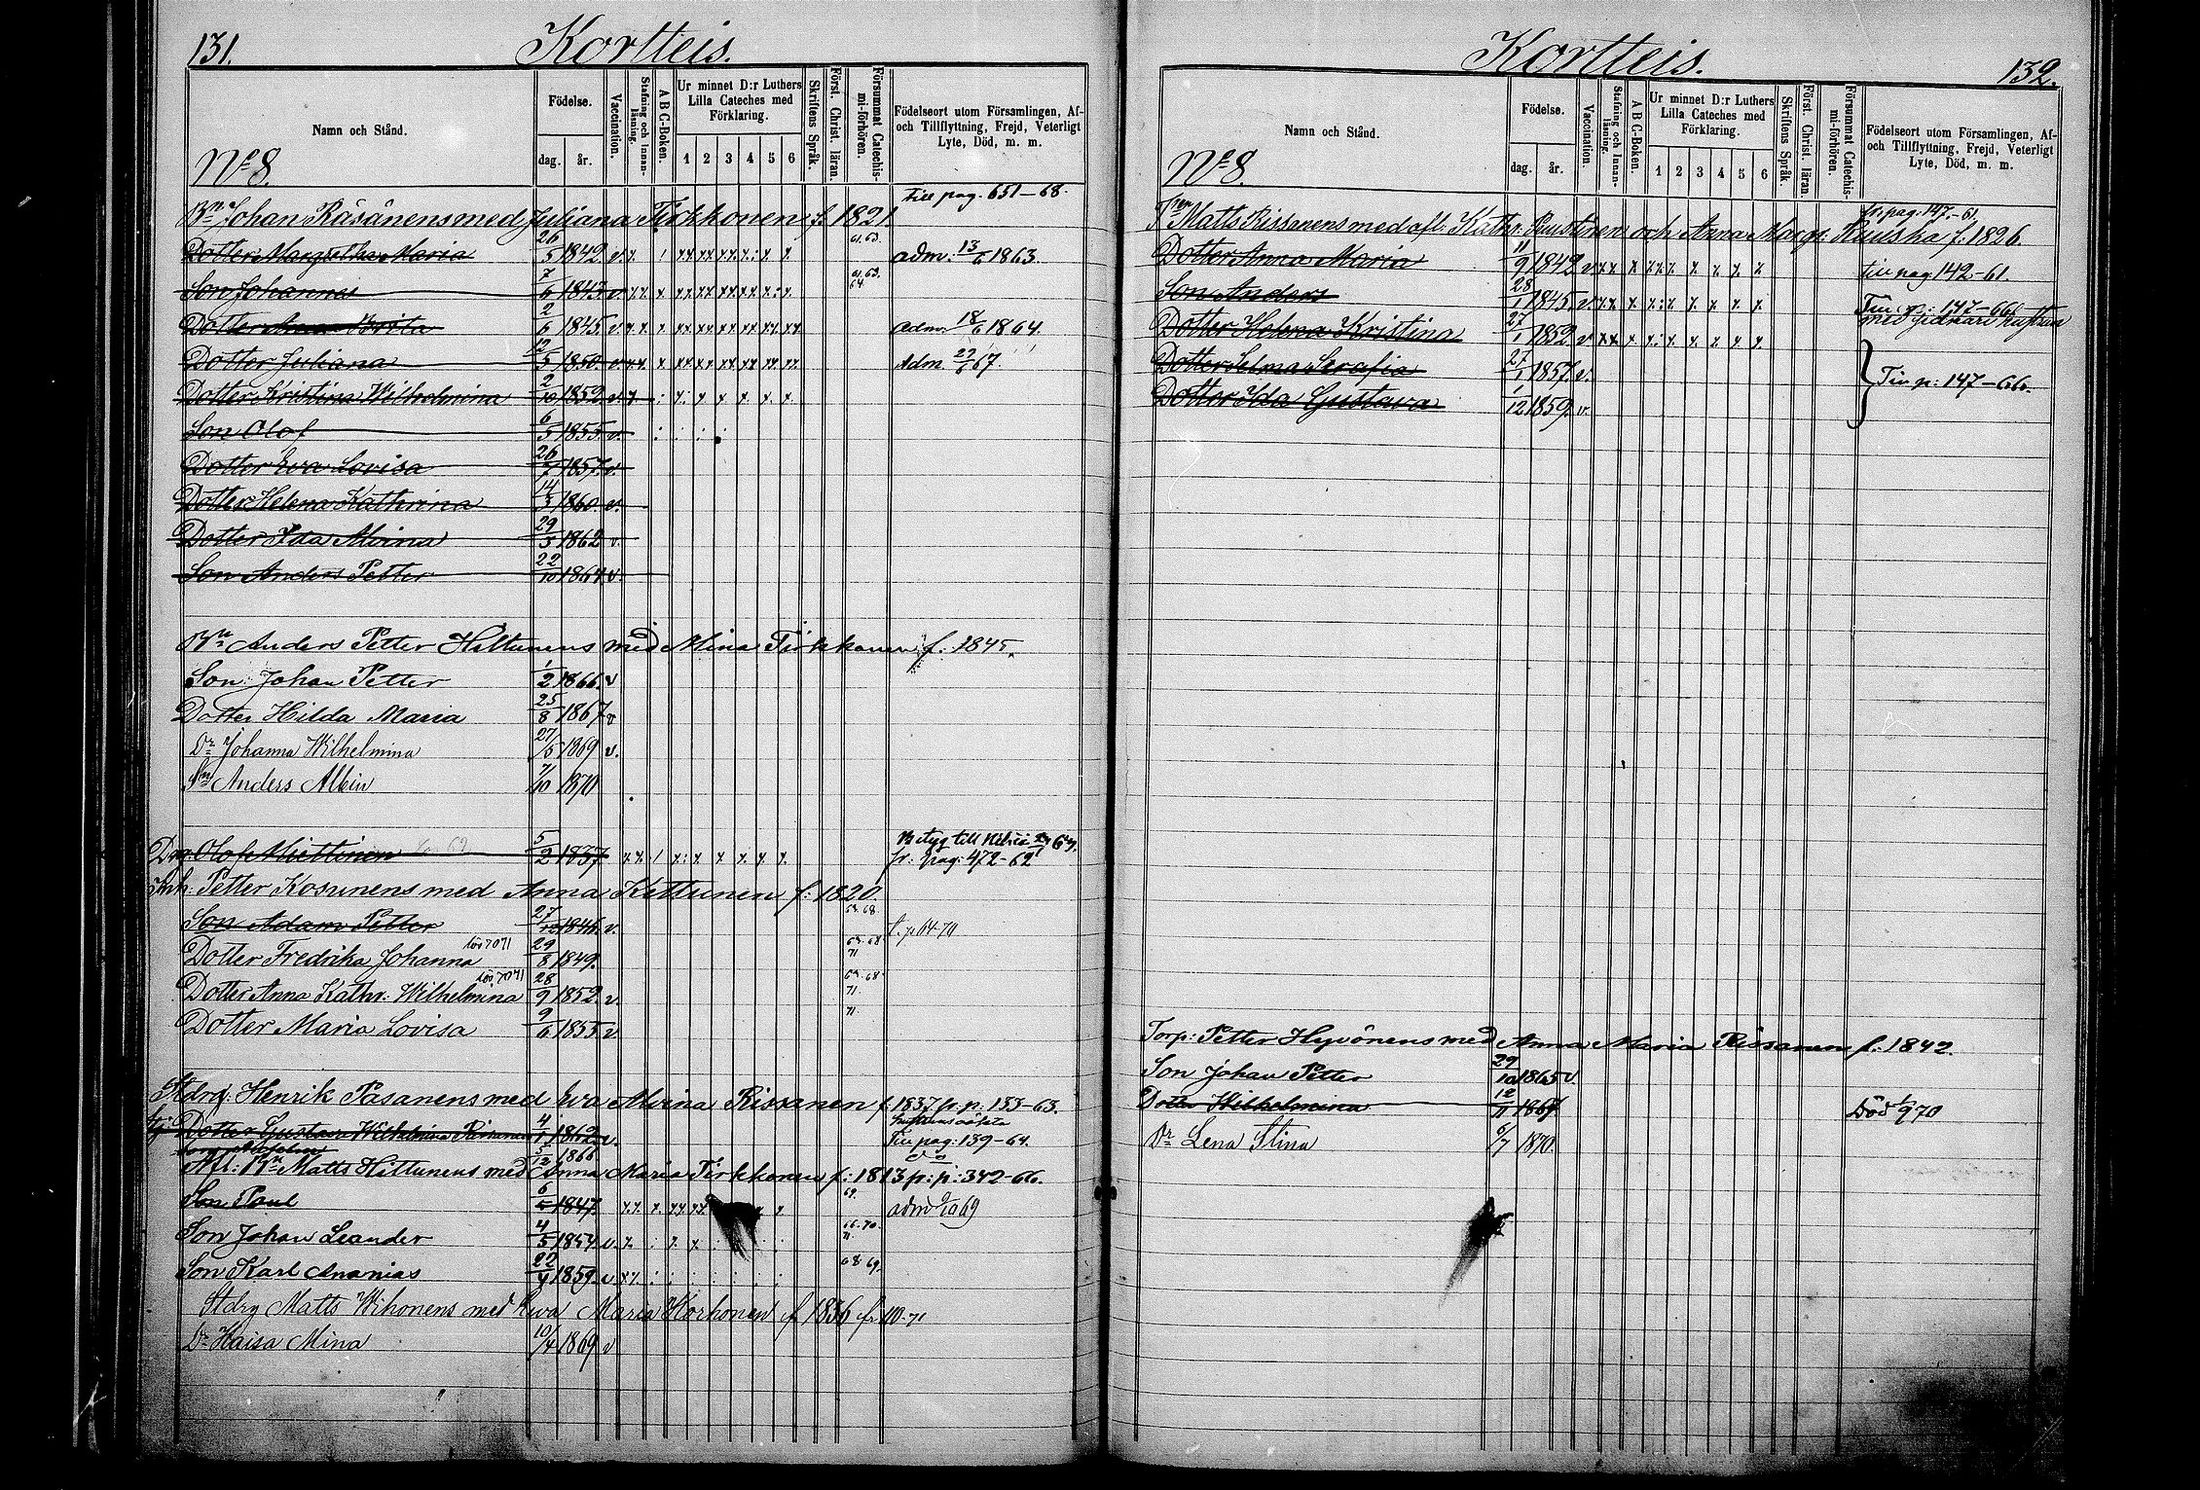 131.
Kortteis.
Namn och Stånd.
Födelse.
dag. år.
Vaccination.
Stafning och Innan-läsning.
A B C-Boken.
Ur minnet D:r Luthers Lilla Cateches med Förklaring.
1 2 3 4 5 6
Skriftens Språk.
Först. Christ. läran.
Försummat Catechis-mi-förhören.
Födelseort utom Församlingen, Af- och Tillflyttning, Frejd, Veterligt Lyte, Död, m. m.
No 8.
till pag. 651-68.
Bn Johan Räsänens med Juliana Tirkkonen f. 1821.
Dotter Margretha Maria 26/5 1842 v. 61.63. adm. 13/6 1863.
Son Johannes 7/6 1843 v. 61.63. 64.
Dotter Anna Brita 2/6 1845 v. adm. 18/6 1864.
Dotter Juliana 12/5 1850. v. Adm 29/6 67.
Dotter Kristina Wilhelmina 2/10 1852 v.
Son Olof 6/5 1855 v.
Dotter Eva Lovisa 26/7 1857. v.
Dotter Helena Kathrina 14/3 1860 v.
Dotter Ida Alvina 29/5 1862 v.
Son Anders Petter 22/10 1864 v.
Bn Anders Petter Hiltunens med Mina Tirkkonen f. 1845.
Son: Johan Petter 1/2 1866. v
Dotter Hilda Maria 25/8 1867 v
Dr Johanna Wilhelmina 27/5 1869 v.
Sn Anders Albin 7/10 1870
Drg: Olof Miettinen 5/2 1837 Betyg till
fr: pag: 472-62
Inh: Petter Kosunens med Anna Kettunen f: 1820.
Son Adam Petter 27/12 1846. v. 63.68. t. p 64-70
Dotter Fredrika Johanna 29/8 1849. 63.68. 71
Dotter Anna Kathr: Wilhelmina 28/9 1852. v. 63.68. 71.
Dotter Maria Lovisa 9/6 1855 v 71.
Stdrg: Henrik Pasanens med Eva Alvina Rissanen f 1837 fr. p: 133-63.
Dotter Gustava Wilhelmina 4/1 1862 v. Till pag: 139-64.
Afl: Bn Matts Hiltunens med Anna Maria Tirkkonen f: 1813 p: p: 342-66.
Son Paul 6/5 1847. 69. adm
Son Johan Leander 4/5 1854 v. 66.70. 71.
Son Karl Ananias 22/4 1859. v. 68 69.
Stdrg Matts Wihonens med Ewa Maria Korhonen f 1836 fr 110-71
Dr Kaisa Mina 10/4 1869 v
Kortteis.
132.
Namn och Stånd.
Födelse.
dag. år.
Vaccination.
Stafning och Innan-läsning.
A B C-Boken.
Ur minnet D:r Luthers Lilla Cateches med Förklaring.
1 2 3 4 5 6
Skriftens Språk.
Först. Christ. läran.
Försummat Catechis-mi-förhören.
Födelseort utom Församlingen, Af- och Tillflyttning, Frejd, Veterligt Lyte, Död, m. m.
No 8.
fr. pag: 147.-61.
Matts Rissanens med afl. Kathr. Puustinen och Anna Margr. Kuusha f: 1826.
Dotter Anna Maria 11/9 1842 v till pag 142-61.
Son Anders 28/1 1845. v. Till p: 147-66
Dotter Helena Kristina 27/1 1852 v
Dotter Selma Serafia 27/1 1857. v.
Till p: 147-66.
Dotter Ida Gustava 1/12 1859. v.
Torp: Petter Hyvönens med Anna Maria Rissanen f: 1842.
Son Johan Petter 29/10 1865 v.
Dotter Wilhelmina 12/11 1867 Död 1/9 70
Dr Lena Stina 6/7 1870.